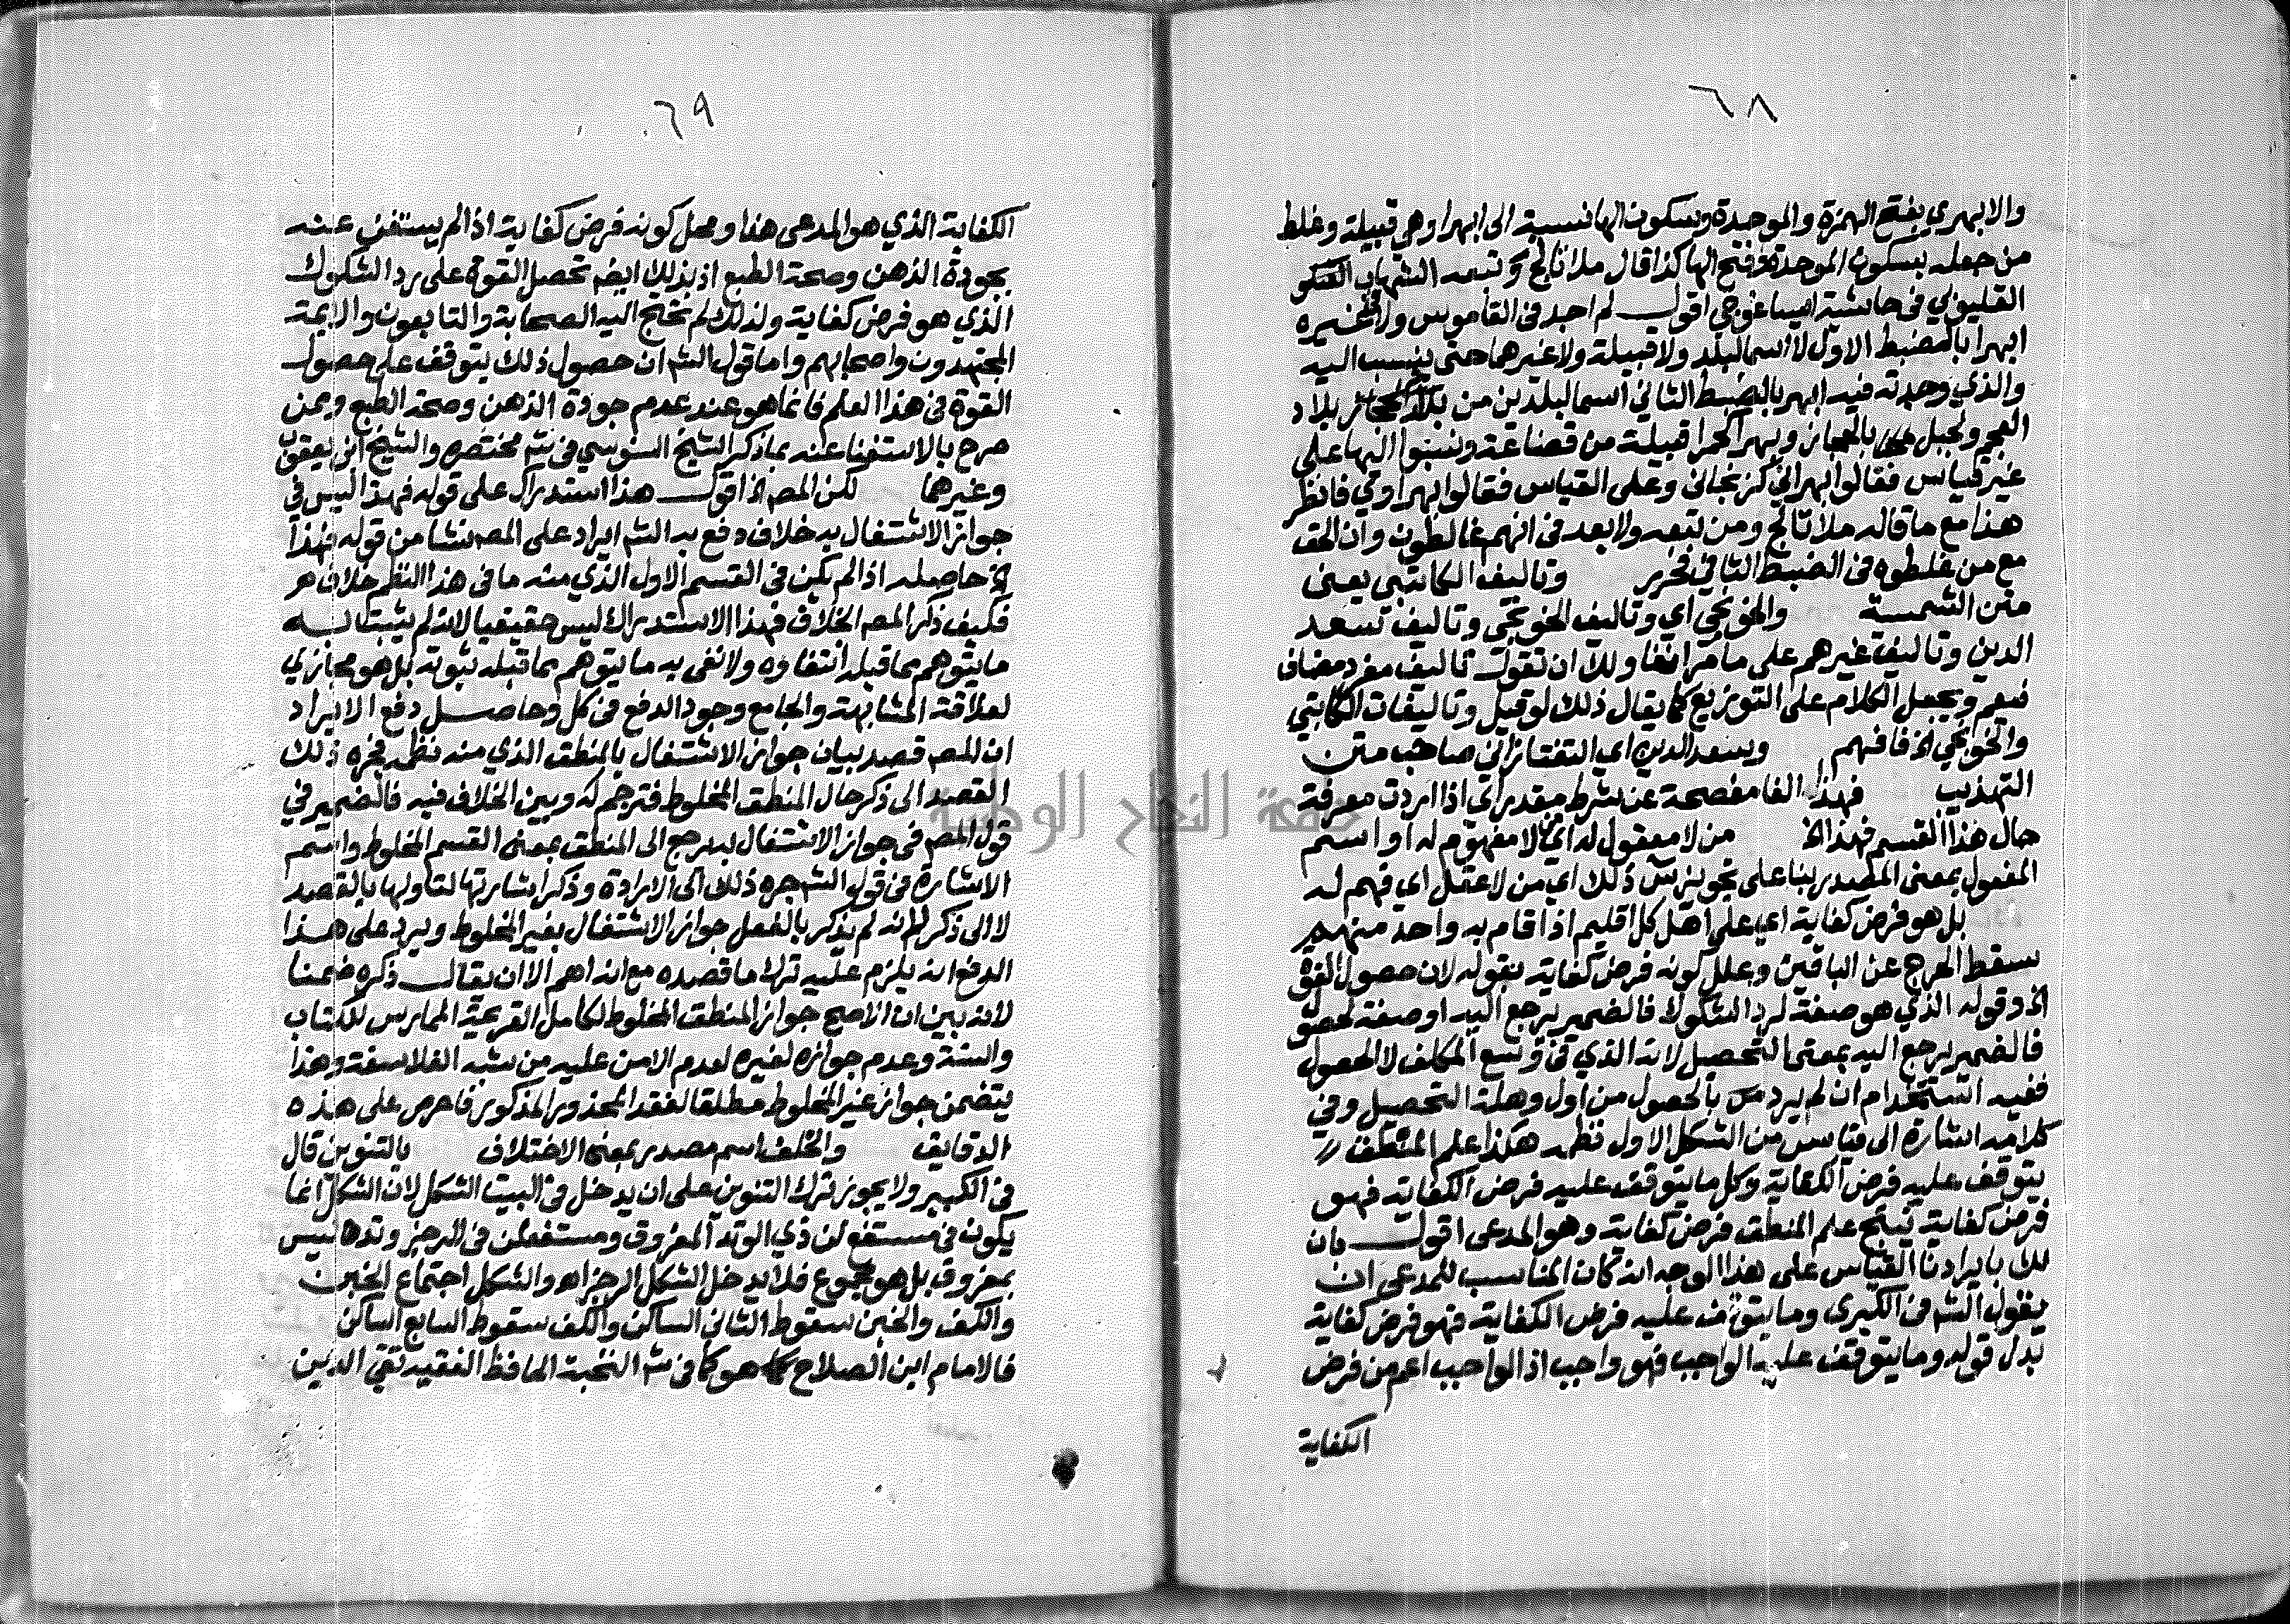 ٦٨
والابهري بفتح الهمزة والموحدة وسكون الها نسبة الى ابهرا وهي قبيلة وغلط
من جعله بسكون الموحدة وفتح الها كذا قال ملا نالج وتبعه الشهاب
القليوبي في حاشية ايساغوجي اقول لم اجد في القاموس ولا في غيره
ابهرا بالضبط الاول لا اسما لبلد ولا قبيلة ولا غيرها حتى ينسب اليه
والذي وجدته فيه ابهر بالضبط الثاني اسما لبلدين من بلاد
العجم ولجبل بالحجاز وبهرا كحمرا قبيلة من قضاعة ونسبوا اليها على
غير قياس فقالوا بهراني كزنجاني وعلى القياس فقالوا بهراوي فانظر
هذا مع ما قاله ملا نالج ومن تبعه ولا بعد في انهم غالطون وان الحق
مع من غلطوه في الضبط الثاني فحرر وتاليف الكاتبي يعني
متن الشمسية والخونجي اي وتاليف الخونجي وتاليف سعد
الدين وتاليف غيرهم على ما مر انفا ولك ان تقول تاليف مفرد مضاف
فيعم ويجعل الكلام على التوزيع كما يقال ذلك لو قيل وتاليفات الكاتبي
والخونجي الخ فافهم وسعد الدين اي التفتازاني صاحب متن
التهذيب فهذا الفا مفصحة عن شرط مقدر اي اذا اردت معرفة
حال هذا القسم فهذا الخ من لا معقول له اي لا مفهوم له او اسم
المفعول بمعنى المصدر بنا على تجويز س ذلك اي من لا عقل اي فهم له
بل هو فرض كفاية اي على اهل كل اقليم اذا قام به واحد منهم
سقط الحرج عن الباقين وعلل كونه فرض كفاية بقوله لان حصول القوة
الخ وقوله الذي هو صفة لرد الشكوك فالضمير يرجع اليه او صفة لحصول
فالضمير يرجع اليه بمعنى التحصيل لانه الذي في وسع المكلف لا الحصول
ففيه استخدام ان لم يرد من بالحصول من اول وهلة التحصيل وفي
كلامه اشارة الى قياس من الشكل الاول نظمه هكذا علم المنطق
يتوقف عليه فرض الكفاية وكل ما يتوقف عليه فرض الكفاية فهو
فرض كفاية ينتج علم المنطق فرض كفاية وهو المدعى اقول بان
لك بايرادنا القياس على هذا الوجه انه كان المناسب للمدعى ان
يقول الشم في الكبرى وما يتوقف عليه فرض الكفاية فهو فرض كفاية
بدل قوله وما يتوقف عليه الواجب فهو واجب اذ الواجب اعم من فرض
الكفاية
٦٩
الكفاية الذي هو المدعى هذا ومحل كونه فرض كفاية اذا لم يستغن عنه
بجودة الذهن وصحة الطبع اذ بذلك ايضا تحصل القوة على رد الشكوك
الذي هو فرض كفاية ولذلك لم يحتج اليه الصحابة والتابعون والايمة
المجتهدون واصحابهم واما قول الشم ان حصول ذلك يتوقف على حصول
القوة في هذا العلم فانما هو عند عدم جودة الذهن وصحة الطبع وممن
صرح بالاستغنا عنه بما ذكر الشيخ السنوسي في شم مختصره والشيخ ابن يعقوب
وغيرهما لكن المصم الخ اقول هذا استدراك على قوله فهذا ليس في
جواز الاشتغال به خلاف دفع به الشم ايراد على المصم نشا من قوله فهذا
الخ حاصله اذا لم يكن في القسم الاول الذي منه ما في هذا النظم خلاف
فكيف ذكر المصم الخلاف فهذا الاستدراك ليس حقيقيا لانه لم يثبت له
ما يتوهم بما قبله انتفاوه ولا نفى به ما يتوهم بما قبله ثبوته بل هو مجازي
لعلاقة المشابهة والجامع وجود الدفع في كل وحاصل دفع الايراد
ان المصم قصد بيان جواز الاشتغال بالمنطق الذي منه نظمه فجره ذلك
القصد الى ذكر حال المنطق المخلوط فترجم له وبين الخلاف فيه فالضمير في
قول المصم في جواز الاشتغال به يرجع الى المنطق بمعنى القسم المخلوط واسم
الاشارة في قول الشم جره ذلك الى الارادة وذكر اشارتها لتاولها بالقصد
لا الى ذكر لانه لم يذكر بالفعل جواز الاشتغال بغير المخلوط ويرد على هذا
الدفع انه يلزم عليه ترك ما قصده مع انه اهم الا ان يقال ذكره ضمنا
لانه بين ان الاصح جواز المنطق المخلوط لكامل القريحة الممارس للكتاب
والسنة وعدم جوازه لغيره لعدم الامن عليه من شبه الفلاسفة وهذا
يتضمن جواز غير المخلوط مطلقا لفقد المحذور المذكور فاحرص على هذه
الدقايق والخلف اسم مصدر بمعنى الاختلاف بالتنوين قال
في الكبير ولا يجوز ترك التنوين على ان يدخل في البيت الشكل لان الشكل انما
يكون في مستفع لن ذي الوتد المفروق ومستفعلن في الرجز وتدها ليس
بمفروق بل هو مجموع فلا يدخل الشكل الرجز اه والشكل اجتماع الخبن
والكف والخبن سقوط الثاني الساكن والكف سقوط السابع الساكن
فالامام ابن الصلاح هو كما في شم النخبة الحافظ الفقيه تقي الدين
جامعة النجاح الوطنية